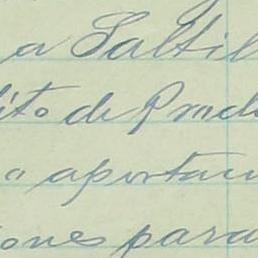 a Saltil
ito de Prod
o aportan
iones para